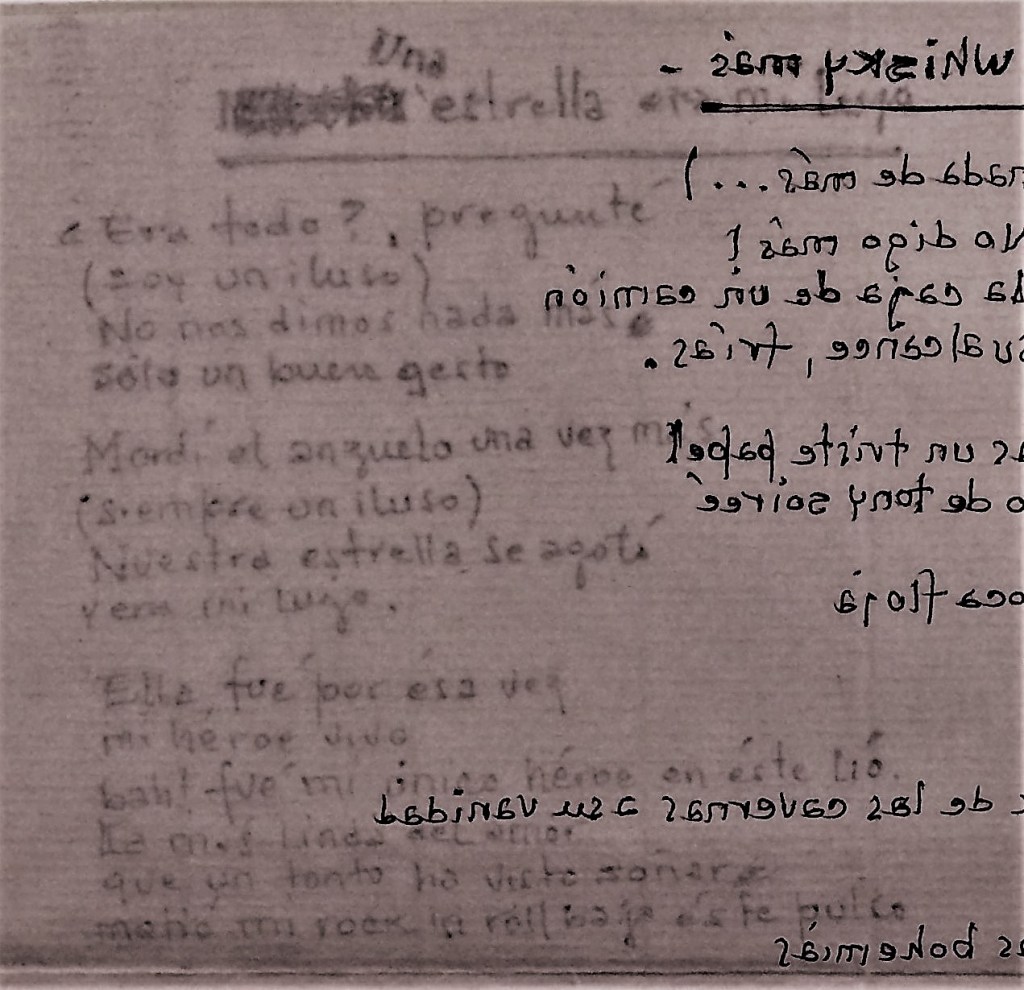 Una estrella era mi lujo
¿Era todo?, pregunté
(soy un iluso)
No nos dimos nada más
sólo un buen gesto
Mordí el anzuelo una vez más
(siempre un iluso)
Nuestra estrella se agotó
y era mi lujo.
Ella, fué por ésa vez
mi héroe vivo
bah! fué mi único héroe en éste lió.
La más linda del amor
que un tonto ha visto soñar
mi rock in roll bajo éste pulso
Whisky más -
nada de más...)
No digo más!
la caja de un camión
su alcance,
un triste papel
de tony soireé
floja
de las cavernas a su vanidad
bohemias